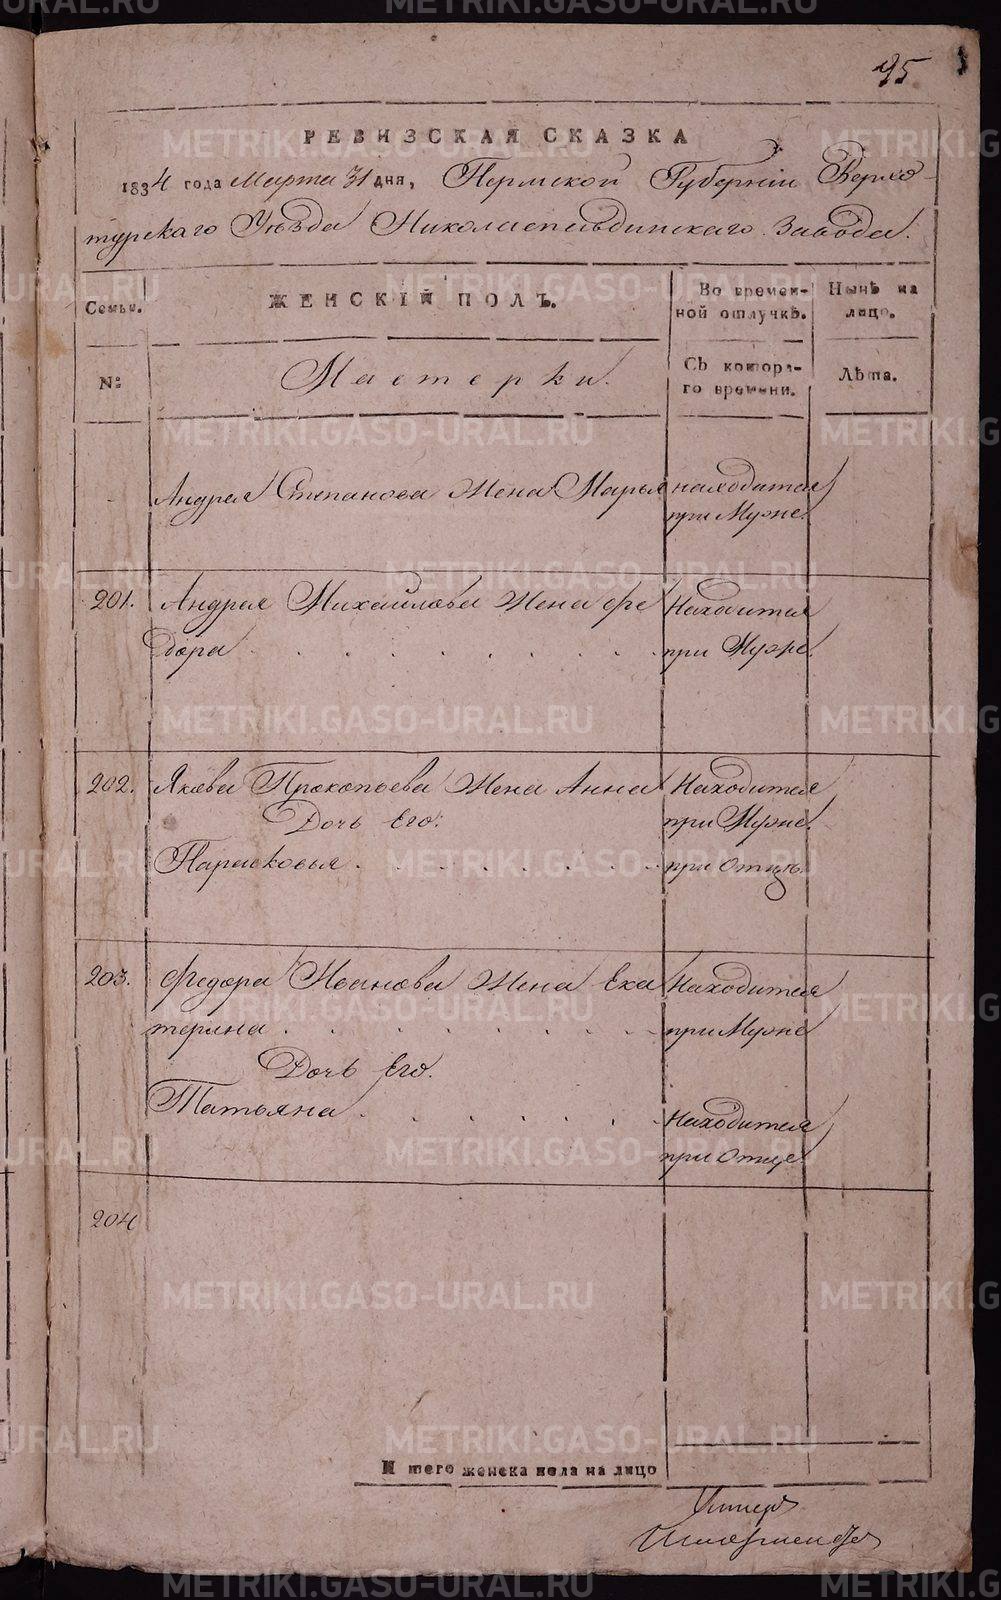 95
РЕВИЗСКАЯ СКАЗКА
1834 года Марта 31 дня, Пермской Губерніи Верхо-
турскаго Уѣзда Николаепавдинскаго Завода.
Семьи. ЖЕНСКІЙ ПОЛЪ. Во времен- Нынѣ на
ной отлучкѣ. лицо.
№ Мастерки. Съ котора- Лѣта.
го времени.
Андрея Степанова Жена Марья находится
при Мужѣ.
201. Андрея Михайлова Жена Фе Находится
дора при Мужѣ.
202. Якова Прокопьева Жена Анна Находится
Дочь Его: при Мужѣ.
Парасковья при Отцѣ.
203. Федора Иванова Жена Ека Находится
терина при Мужѣ
Дочь Его.
Татьяна Находится
при Отце.
204
И того женска пола на лицо
METRIKI.GASO-URAL.RU